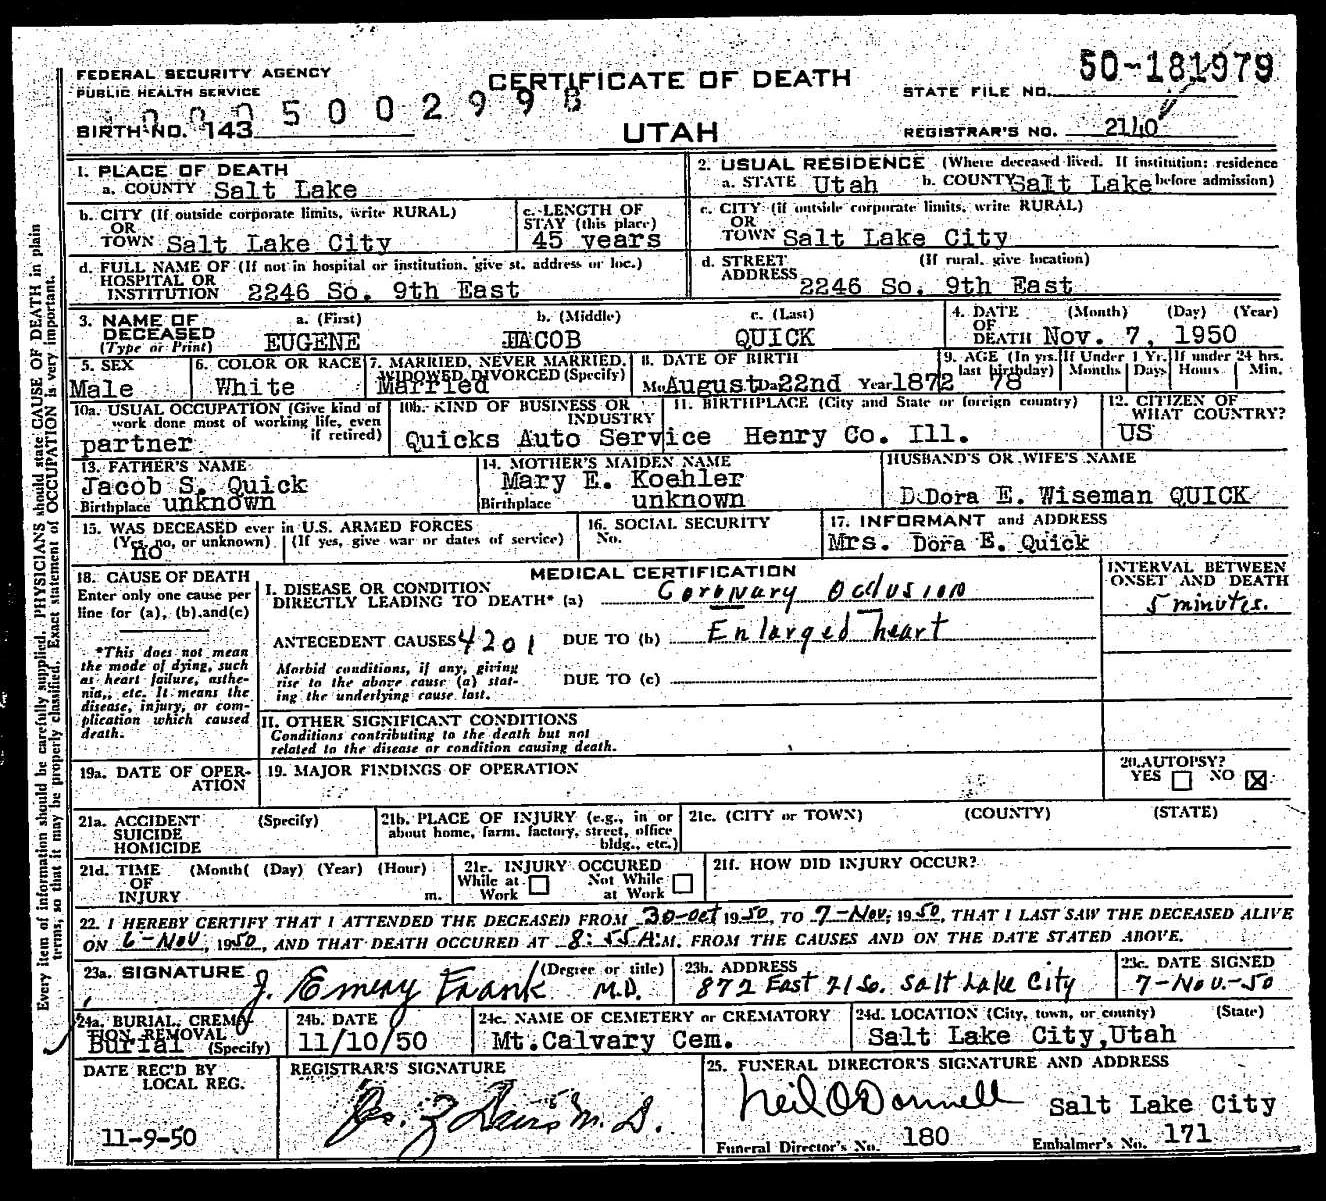 FEDERAL SECURITY AGENCY
PUBLIC HEALTH SERVICE
CERTIFICATE OF DEATH
UTAH
STATE FILE NO. 50-181979
BIRTH NO. 143
REGISTRAR'S NO. 2140
1. PLACE OF DEATH
a. COUNTY Salt Lake
b. CITY (If outside corporate limits, write RURAL)
OR
TOWN Salt Lake City
c. LENGTH OF
STAY (this place)
45 years
d. FULL NAME OF (If not in hospital or institution, give st. address or loc.)
HOSPITAL OR
INSTITUTION 2246 So. 9th East
2. USUAL RESIDENCE (Where deceased lived. If institution: residence
before admission)
a. STATE Utah b. COUNTY Salt Lake
c. CITY (if outside corporate limits, write RURAL)
OR
TOWN Salt Lake City
d. STREET (If rural, give location)
ADDRESS 2246 So. 9th East
3. NAME OF
DECEASED
(Type or Print)
a. (First) b. (Middle) c. (Last)
EUGENE JACOB QUICK
4. DATE (Month) (Day) (Year)
OF
DEATH Nov. 7, 1950
5. SEX
Male
6. COLOR OR RACE
White
7. MARRIED, NEVER MARRIED,
WIDOWED DIVORCED (Specify)
Married
8. DATE OF BIRTH
Mo. August Da 22nd Year 1872
9. AGE (In yrs.
last birthday)
78
If Under 1 Yr.
Months Days
If under 24 hrs.
Hours Min.
10a. USUAL OCCUPATION (Give kind of
work done most of working life, even
if retired)
partner
10b. KIND OF BUSINESS OR
INDUSTRY
Quicks Auto Service
11. BIRTHPLACE (City and State or foreign country)
Henry Co. Ill.
12. CITIZEN OF
WHAT COUNTRY?
US
13. FATHER'S NAME
Jacob S. Quick
Birthplace unknown
14. MOTHER'S MAIDEN NAME
Mary E. Koehler
Birthplace unknown
HUSBAND'S OR WIFE'S NAME
D.Dora E. Wiseman QUICK
15. WAS DECEASED ever in U.S. ARMED FORCES
(Yes, no, or unknown) (If yes, give war or dates of service)
no
16. SOCIAL SECURITY
No.
17. INFORMANT and ADDRESS
Mrs. Dora E. Quick
18. CAUSE OF DEATH
Enter only one cause per
line for (a), (b).and(c)
*This does not mean
the mode of dying, such
as heart failure, asthe-
nia,, etc. It means the
disease, injury, or com-
plication which caused
death.
MEDICAL CERTIFICATION
I. DISEASE OR CONDITION
DIRECTLY LEADING TO DEATH* (a) Coronary Occlusion
ANTECEDENT CAUSES 4201 DUE TO (b) Enlarged heart
Morbid conditions, if any, giving
rise to the above cause (a) stat-
ing the underlying cause last.
DUE TO (c)
INTERVAL BETWEEN
ONSET AND DEATH
5 minutes.
II. OTHER SIGNIFICANT CONDITIONS
Conditions contributing to the death but not
related to the disease or condition causing death.
19a. DATE OF OPER-
ATION
19. MAJOR FINDINGS OF OPERATION
20. AUTOPSY?
YES NO X
21a. ACCIDENT (Specify)
SUICIDE
HOMICIDE
21b. PLACE OF INJURY (e.g., in or
about home, farm, factory, street, office
bldg., etc.)
21c. (CITY or TOWN) (COUNTY) (STATE)
21d. TIME (Month( (Day) (Year) (Hour)
OF
INJURY m.
21e. INJURY OCCURED
While at Not While
Work at Work
21f. HOW DID INJURY OCCUR?
22. I HEREBY CERTIFY THAT I ATTENDED THE DECEASED FROM 30-Oct 1950, TO 7-Nov; 1950, THAT I LAST SAW THE DECEASED ALIVE
ON 6-Nov, 1950, AND THAT DEATH OCCURED AT 8:55 A.M. FROM THE CAUSES AND ON THE DATE STATED ABOVE.
23a. SIGNATURE (Degree or title)
J. Emery Frank M.D.
23b. ADDRESS
872 East 21 So. Salt Lake City
23c. DATE SIGNED
7-Nov.-50
24a. BURIAL, CREMA-
TION, REMOVAL
(Specify)
Burial
24b. DATE
11/10/50
24c. NAME OF CEMETERY or CREMATORY
Mt.Calvary Cem.
24d. LOCATION (City, town, or county) (State)
Salt Lake City,Utah
DATE REC'D BY
LOCAL REG.
11-9-50
REGISTRAR'S SIGNATURE
25. FUNERAL DIRECTOR'S SIGNATURE AND ADDRESS
Neil O'Donnell Salt Lake City
Funeral Director's No. 180 Embalmer's No. 171
Every item of information should be carefully supplied. PHYSICIANS should state CAUSE OF DEATH in plain
terms, so that it may be properly classified. Exact statement of OCCUPATION is very important.